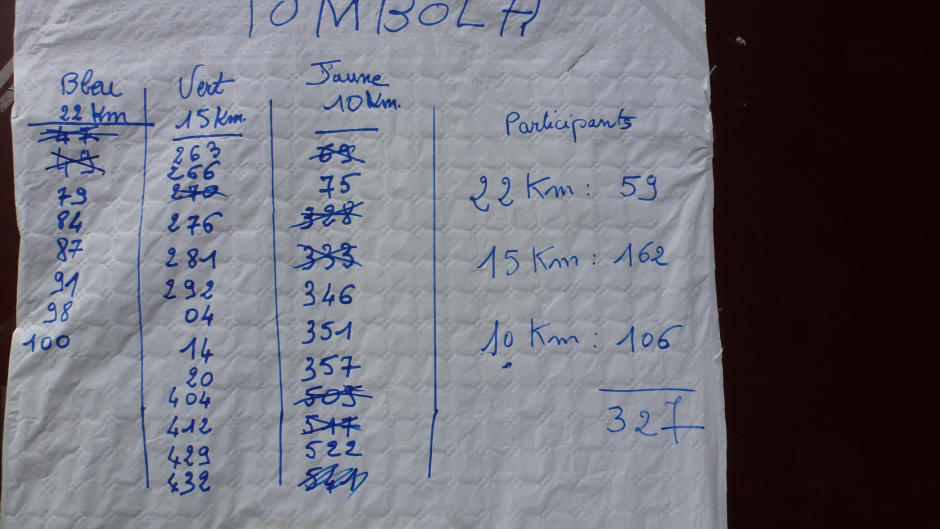 TOMBOLA
Bleu
22 Km
47
49
79
84
87
91
98
100
Vert
15 Km.
263
266
270
276
281
292
04
14
20
404
412
429
432
Jaune
10 Km.
69
75
328
333
346
351
357
505
517
522
Participants
22 Km : 59
15 Km : 162
10 Km : 106
327